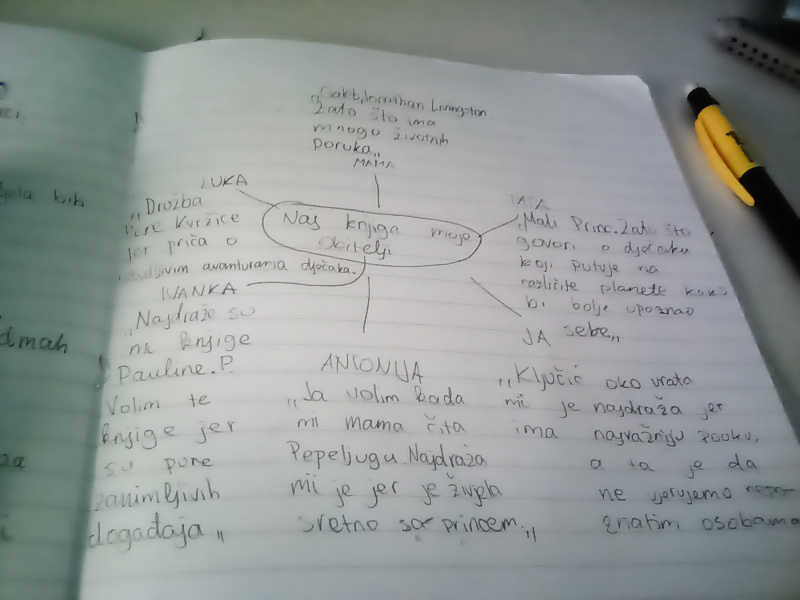 „Galeb Jonathan Livingston.
Zato što ima
mnogo životnih
poruka„
MAMA
LUKA
„Družba
Pere Kvržice
jer priča o
avanturama dječaka.
Naj knjiga moje
obitelji
TATA
„Mali Princ. Zato što
govori o dječaku
koji putuje na
različite planete kako
bi bolje upoznao
sebe„
IVANKA
„Najdraže su
mi knjige
Pauline.P.
Volim te
knjige jer
su pune
zanimljivih
događaja„
ANTONIJA
„Ja volim kada
mi mama čita
Pepeljugu. Najdraža
mi je jer je živjela
sretno sa princem„
JA
„Ključić oko vrata
mi je najdraža jer
ima najvažniju pouku,
a ta je da
ne vjerujemo nepo-
znatim osobama
dmah
za